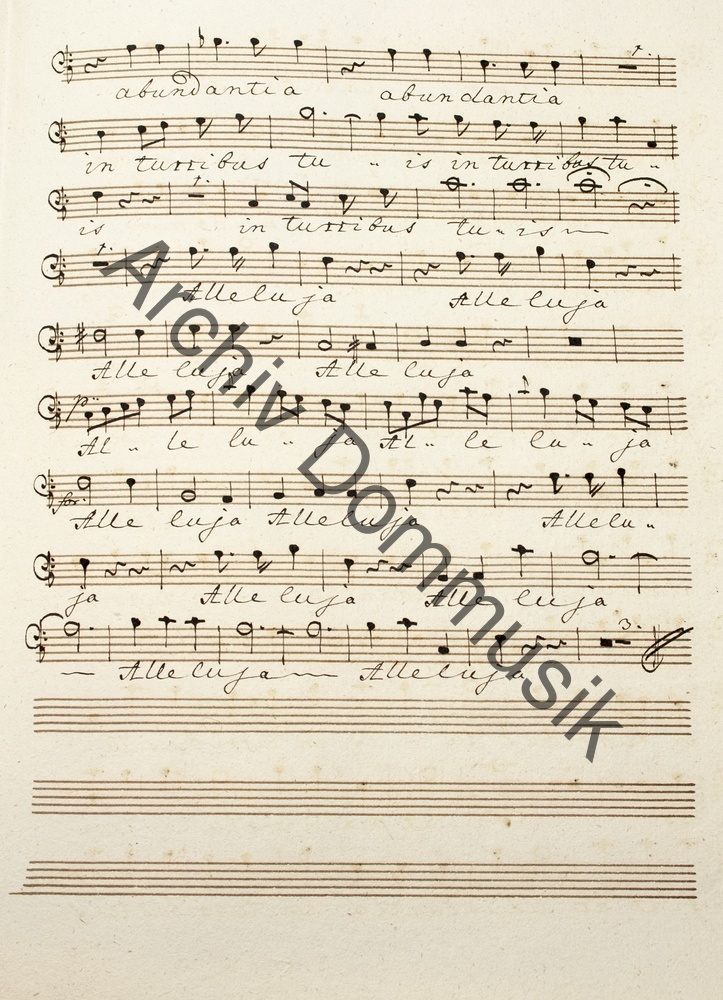 abundantia abundantia
in turribus tu - is in turribus tu -
is in turribus tu - is
Alleluja Alleluja
Alle luja Alle luja
p: Al - le lu - ja Al - le lu - ja
for: Alle luja Alleluja Allelu -
ja Alleluja Alleluja
Alleluja Alleluja
3.
Archiv Dommusik